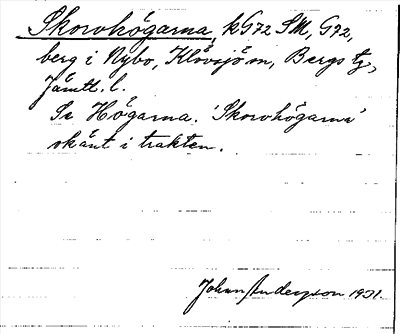 Skorvhögarna, kG72 SM, G72,
berg i Nybo, Klövsjö sn, Bergs tg,
Jämtl. l.
Se Högarna. 'Skorvhögarna'
okänt i trakten.
Johan Anderzson 1931.